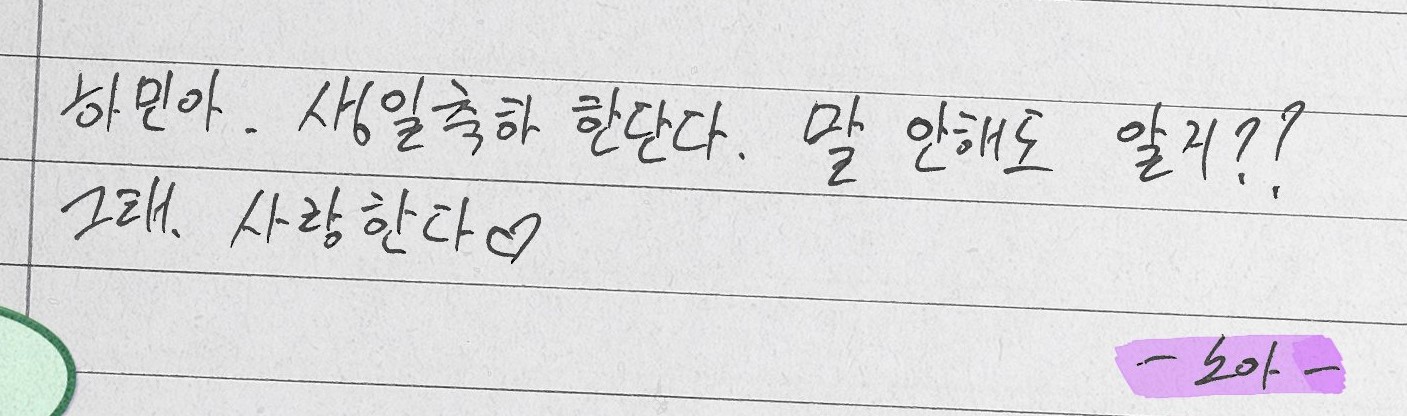 하민아. 생일축하 한단다. 말 안해도 알지??
그래. 사랑한다♡
- 노아 -